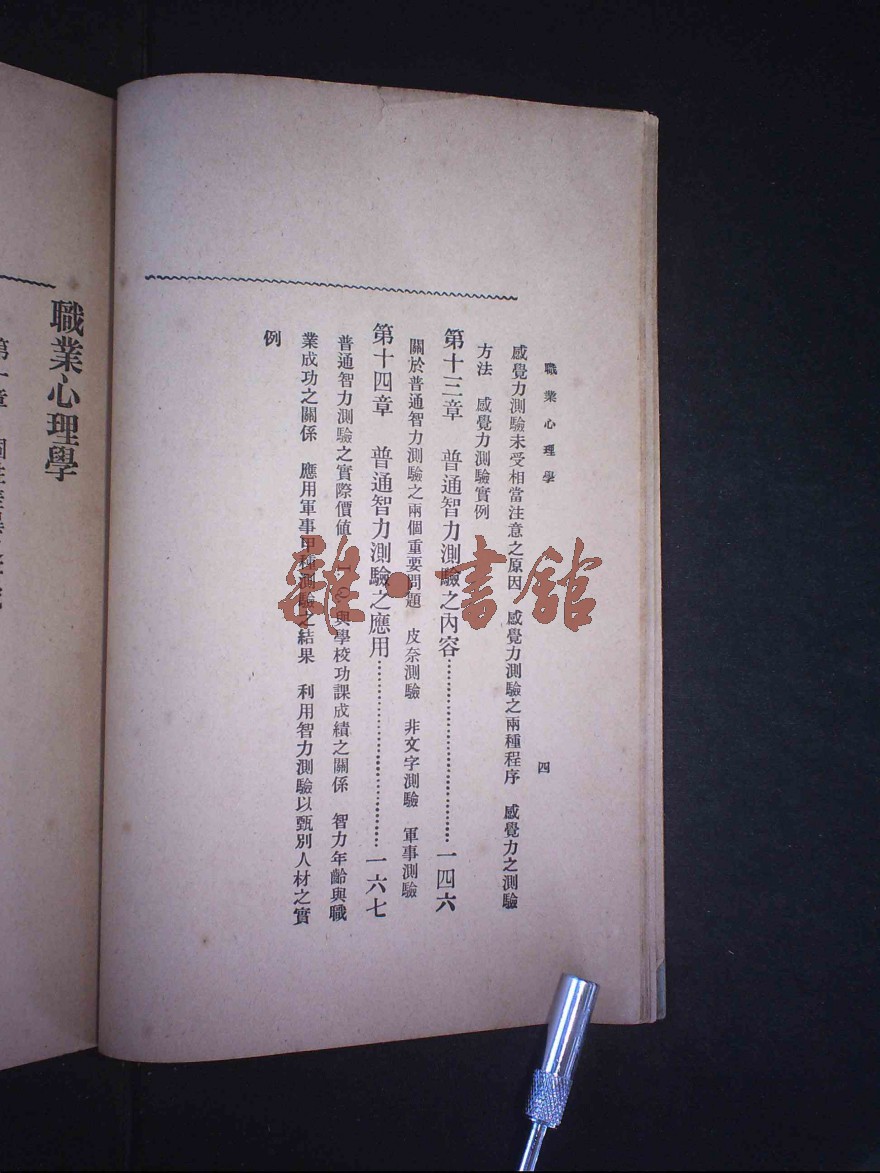 職業心理學
四
感覺力測驗未受相當注意之原因　感覺力測驗之兩種程序　感覺力之測驗
方法　感覺力測驗實例
第十三章　普通智力測驗之內容…………………………一四六
關於普通智力測驗之兩個重要問題　皮奈測驗　非文字測驗　軍事測驗
第十四章　普通智力測驗之應用…………………………一六七
普通智力測驗之實際價値　I.Q.與學校功課成績之關係　智力年齡與職
業成功之關係　應用軍事甲種測驗之結果　利用智力測驗以甄別人材之實
例
職業心理學
第一章
雜·書館